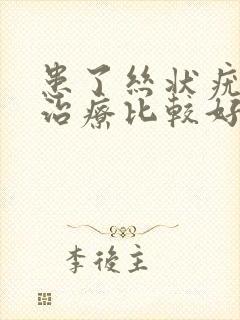 患了丝状疣
治療比較好
李後主